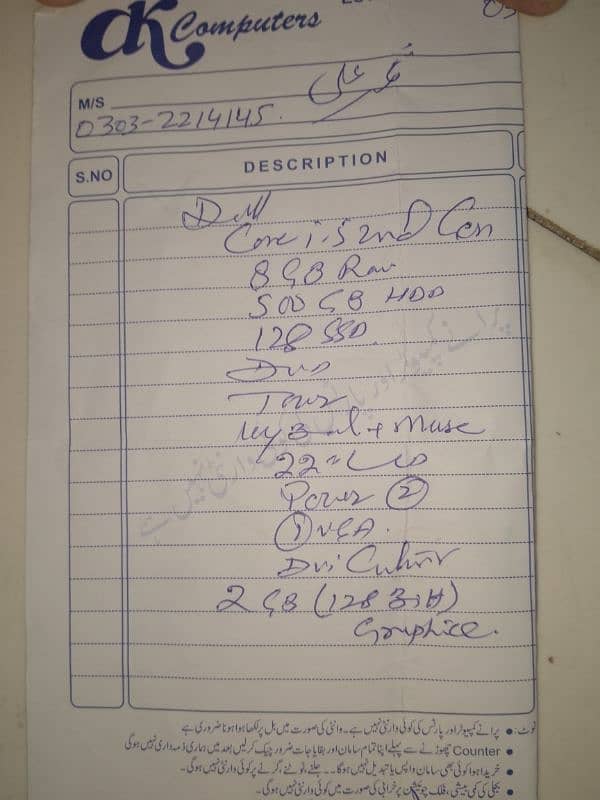 dK Computers
M/S
0303-2214145.
S.NO DESCRIPTION
Dell
Core i.5 2nd Gen
8 GB Ram
500 GB HDD
128 SSD.
DVD
Tower
Key Board + Muse
22" LCD
Power ②
① VGA.
Dvi
2 GB (128 Bit)
Graphice.
نوٹ: ● پرانے کمپیوٹر اور پارٹس کی کوئی وارنٹی نہیں ہے۔ وارنٹی کی صورت میں بل پر لکھا ہوا ہونا ضروری ہے
● Counter چھوڑنے سے پہلے اپنا تمام سامان اور بقایا جات ضرور چیک کرلیں بعد میں ہماری ذمہ داری نہیں ہوگی
● خریدا ہوا کوئی بھی سامان واپس یا تبدیل نہیں ہوگا۔۔ جلنے، ٹوٹنے، گرنے پر کوئی وارنٹی نہیں ہوگی۔
● بجلی کی کمی بیشی، فلک چویشن پر خرابی کی صورت میں کوئی وارنٹی نہیں ہوگی۔
پرانے کمپیوٹر اور پارٹس کی کوئی وارنٹی نہیں ہے